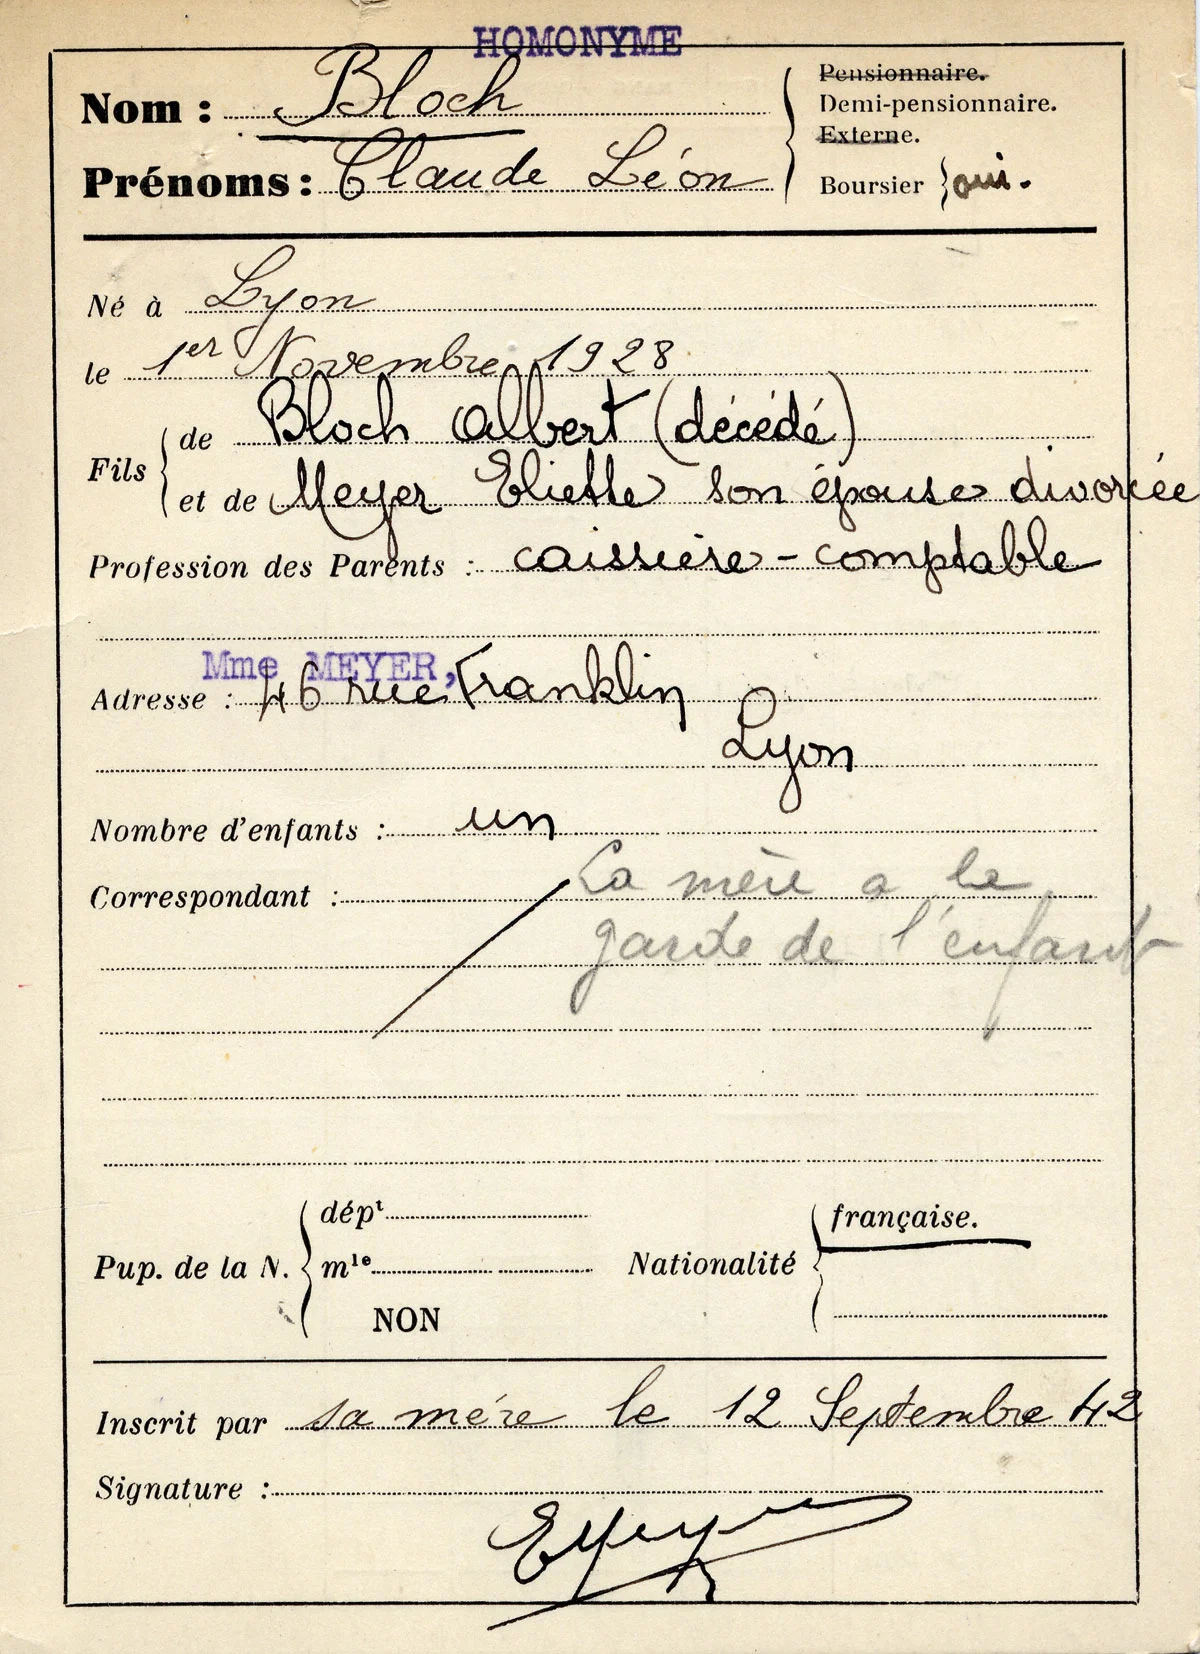 HOMONYME
Nom : Bloch
Prénoms : Claude Léon
Pensionnaire.
Demi-pensionnaire.
Externe.
Boursier } oui.
Né à Lyon
le 1er Novembre 1928
Fils { de Bloch Albert (décédé)
et de Meyer Eliette son épouse divorcée
Profession des Parents : caissière - comptable
Mme MEYER,
Adresse : 46 rue Franklin
Lyon
Nombre d'enfants : un
Correspondant : La mère a la
garde de l'enfant
Pup. de la N. { dépt
mle
NON
Nationalité { française.
Inscrit par sa mére le 12 Septembre 42
Signature : EMeyer